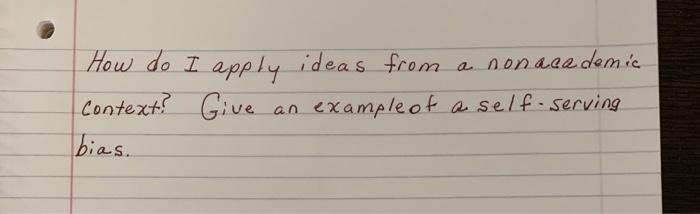 How do I apply ideas from a nonacademic
context? Give an example of a self-serving
bias.